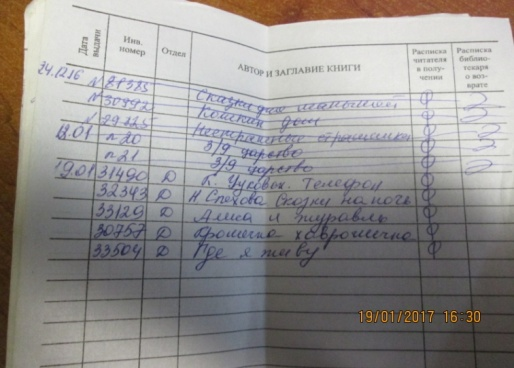 Дата выдачи
Инв. номер
Отдел
АВТОР И ЗАГЛАВИЕ КНИГИ
Расписка читателя в получении
Расписка библиотекаря о возврате
24.12.16 №29383 Сказки для малышей
№30992 дом
№29225 страшилки
12.01 п20 3/9 царство
п21 3/9 царство
19.01 31490 D К. Чуковск. Телефон
32343 D Сказки на ночь
33129 D Алиса и журавль
30757 D Крошечка хаврошечка
33504 D Где я живу
19/01/2017 16:30